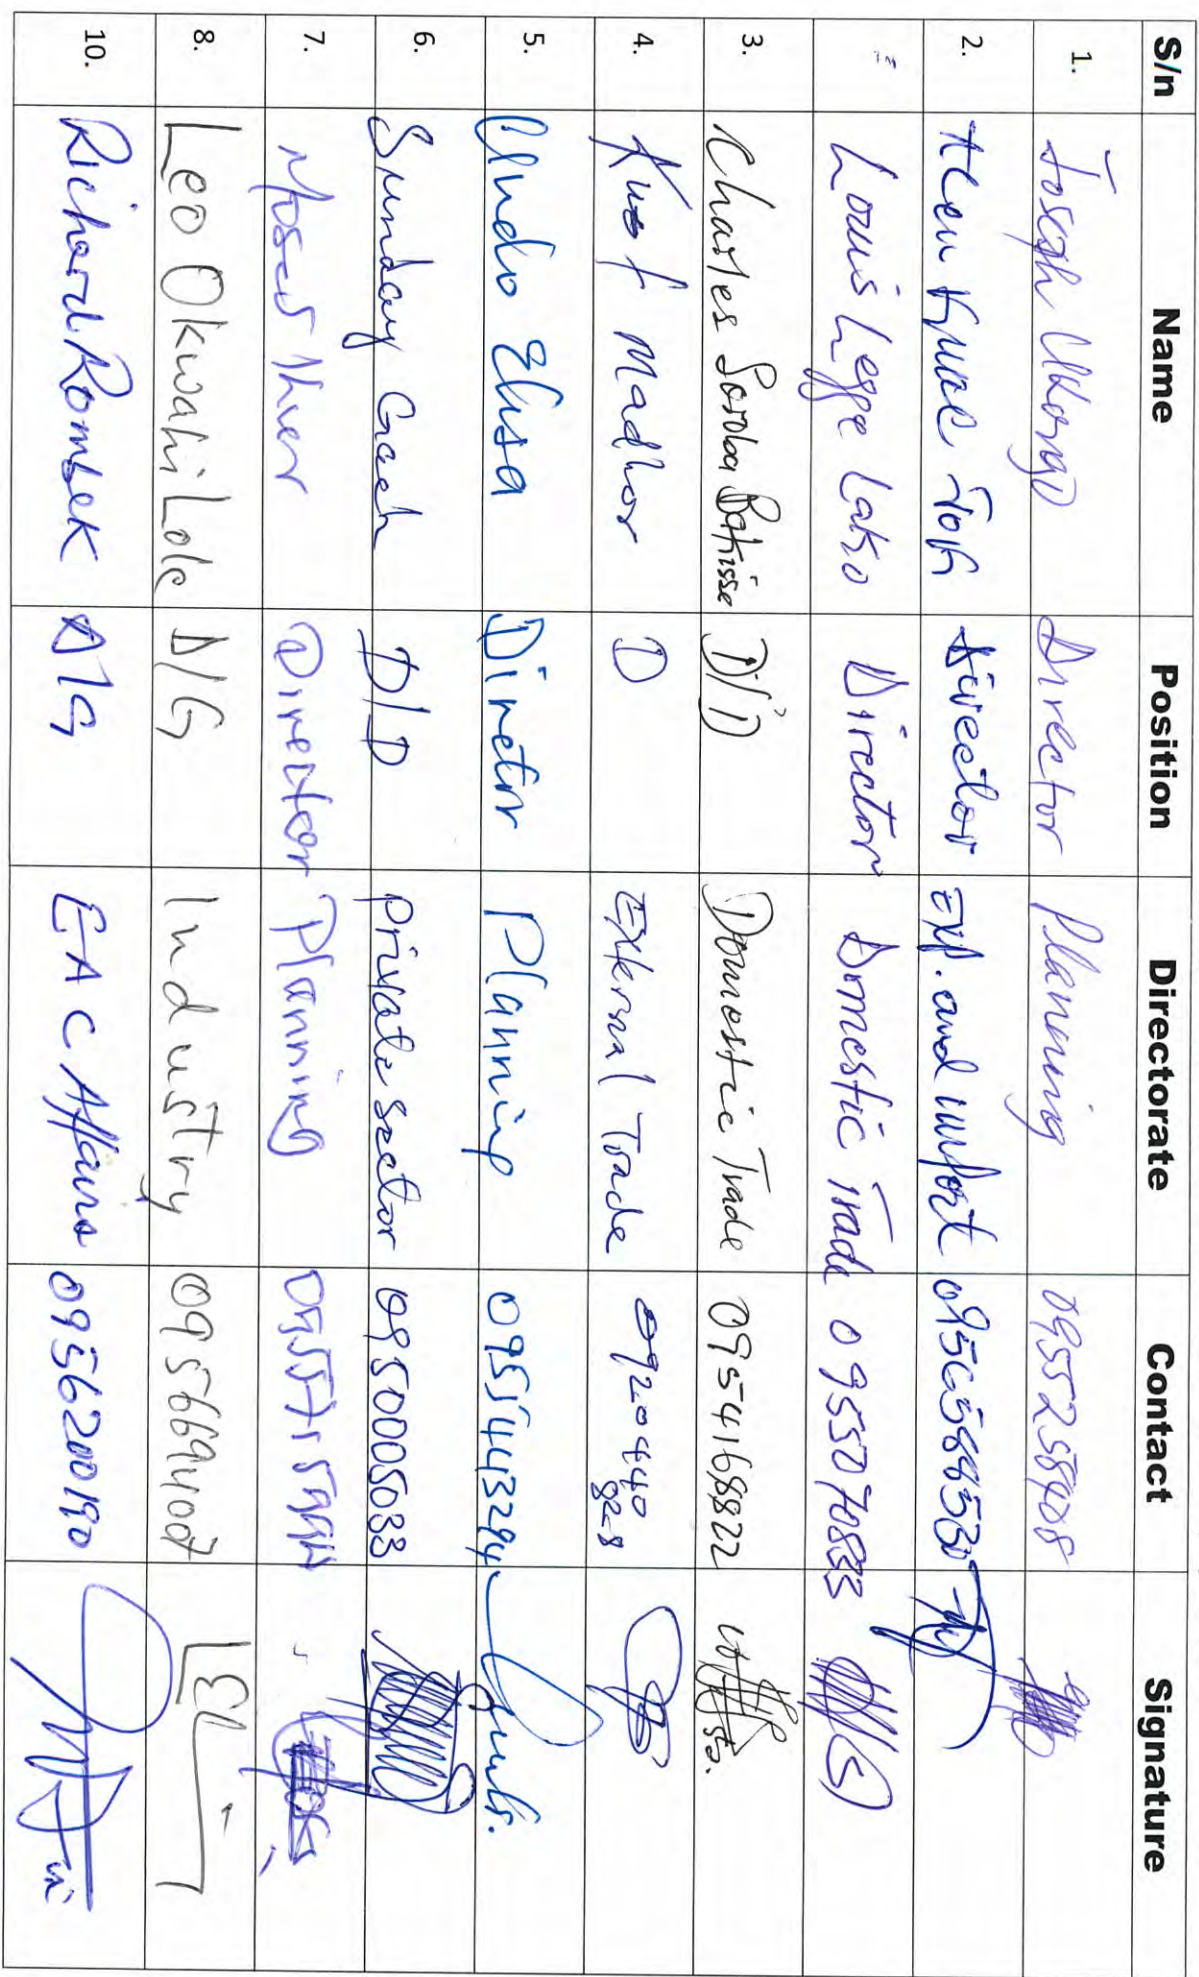 S/n Name Position Directorate Contact Signature
1. Joseph Ukongo Director Planning 0955258408
2. Director Exp. and import
Louis Legge Lako Director Domestic Trade 0955070833
3. Charles Soroba Batisse D/D Domestic Trade 0954168822
4. Kuot Madhor D External Trade 092044 0828
5. Undo Elisa Director Planning 0955443294
6. Sunday Gach D/D private sector 0950005033
7. Moses Director Planning
8. Leo Okwahi Lole D/G Industry 0956694007
10. Richard Rombek D/G EAC Affairs 0956200190